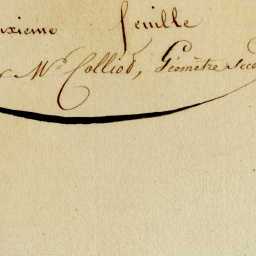 uxieme feuille
Mr Colliod, Géomètre seco